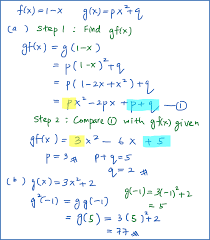 f(x)=1-x    g(x)=px²+q
(a) Step 1 : Find gf(x)
gf(x) = g(1-x)
= p(1-x)²+q
= p(1-2x+x²)+q
= px²-2px+p+q —①
Step 2 : Compare ① with gf(x) given
gf(x) = 3x² - 6x +5
p=3    p+q=5
q=2
(b) g(x)=3x²+2
g(-1)=3(-1)²+2
=5
g²(-1) = gg(-1)
= g(5) = 3(5)²+2
= 77